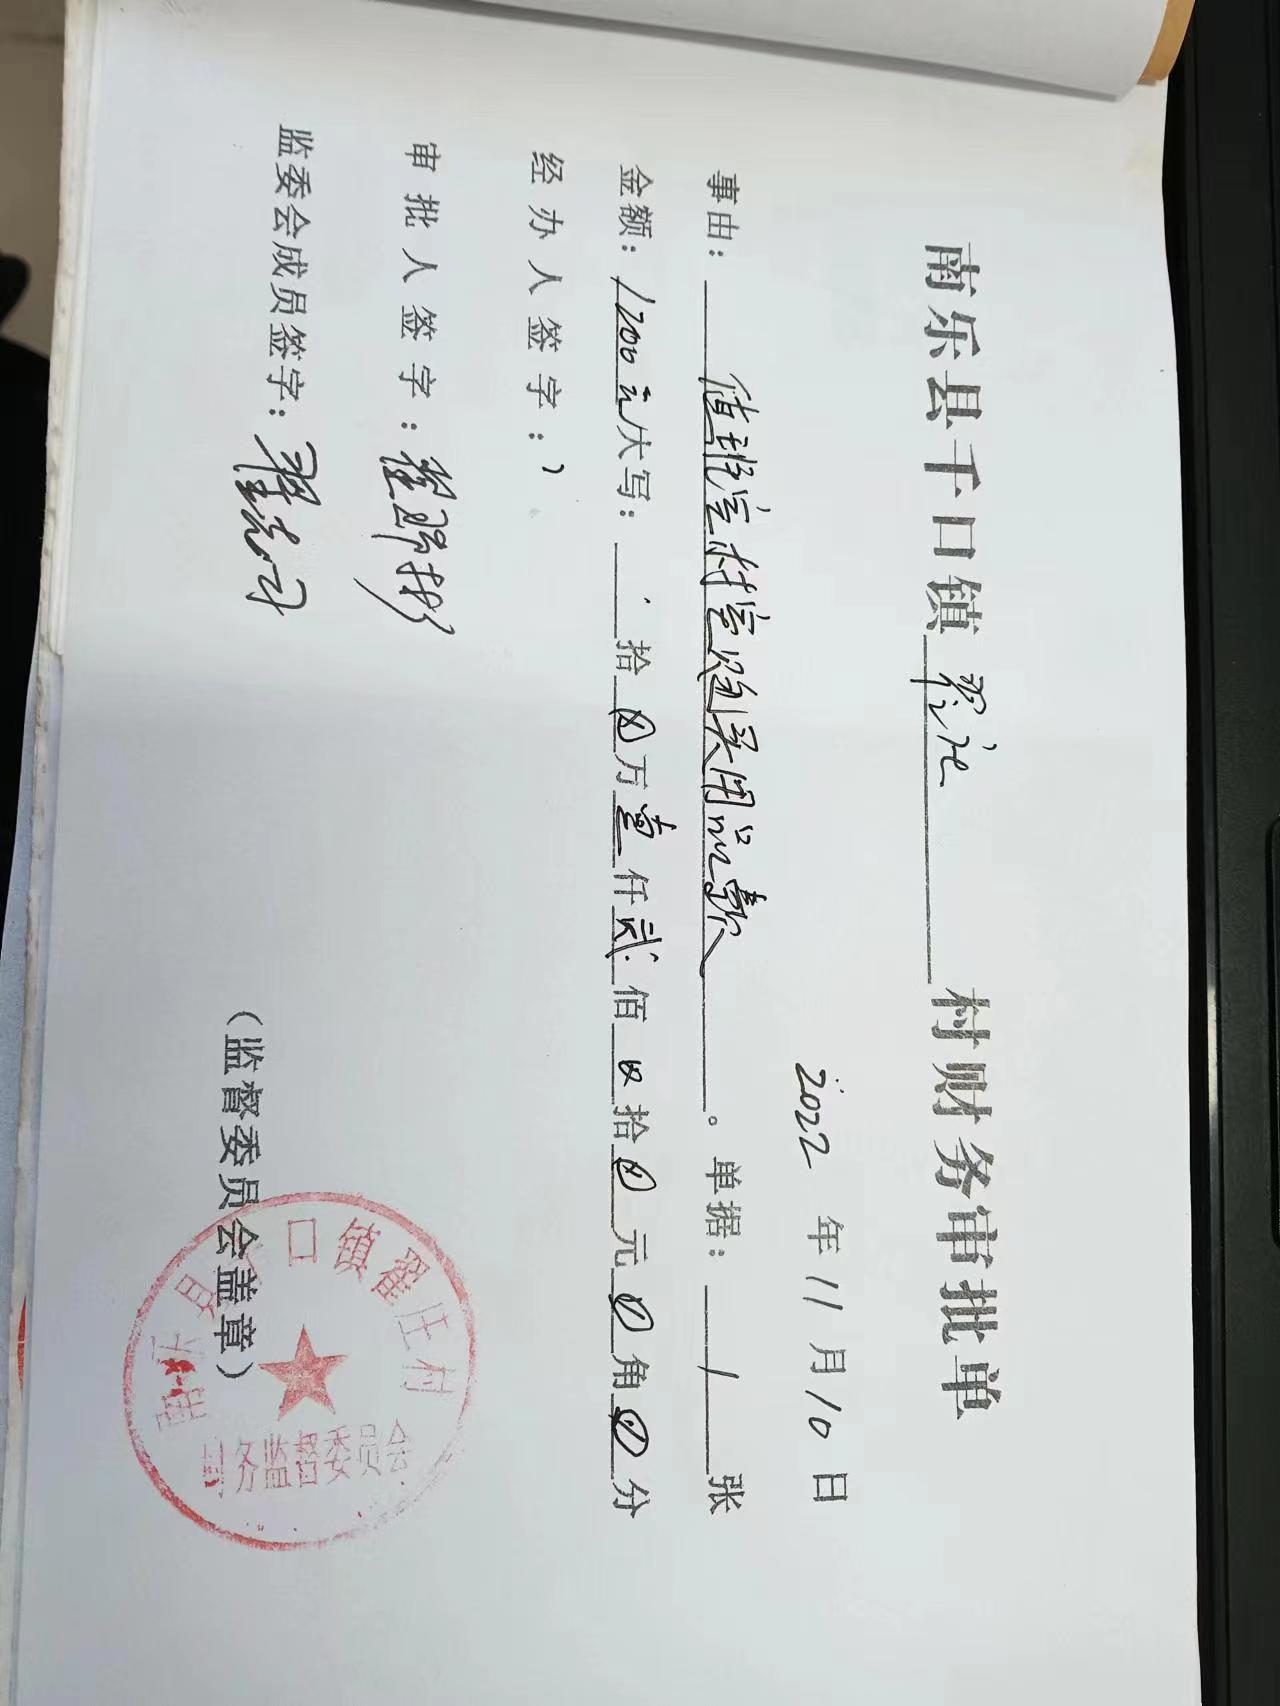 南乐县千口镇翟庄村财务审批单
2022年11月10日
事由：值班室村室购买用品款。单据：1张
金额：1200元大写：拾⊗万壹仟贰佰⊗拾⊗元⊗角⊗分
经办人签字：
审批人签字：翟
监委会成员签字：翟
（监督委员会盖章）
南乐县千口镇翟庄村
村务监督委员会